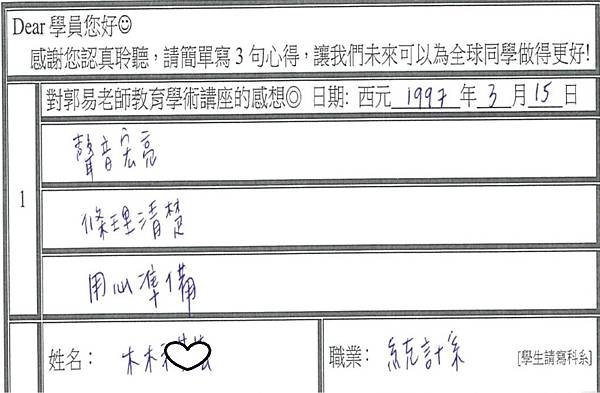 Dear 學員您好☺
感謝您認真聆聽，請簡單寫3句心得，讓我們未來可以為全球同學做得更好!
對郭易老師教育學術講座的感想◎ 日期: 西元 1997 年 3 月 15 日
1
聲音宏亮
條理清楚
用心準備
姓名： 林 職業： 統計系 [學生請寫科系]